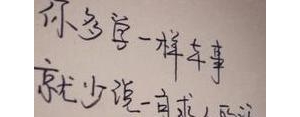 你多学一样本事
就少说一句求人的话